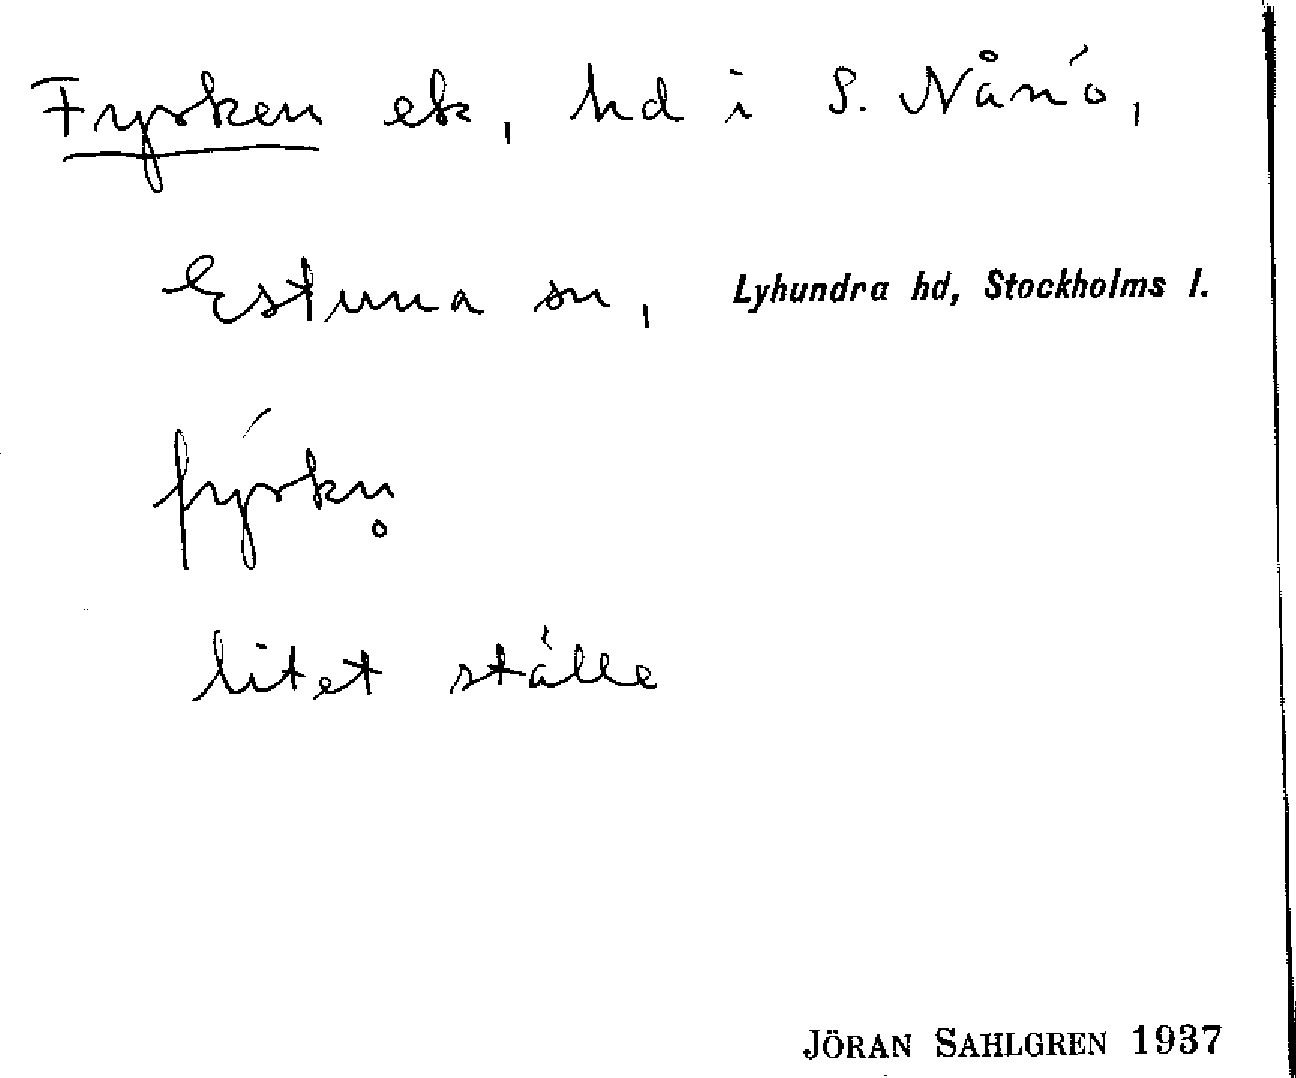 Fyrken ek, hd i S. Nånö,
Estuna sn, Lyhundra hd, Stockholms l.
fýrkn̥
litet ställe
JÖRAN SAHLGREN 1937